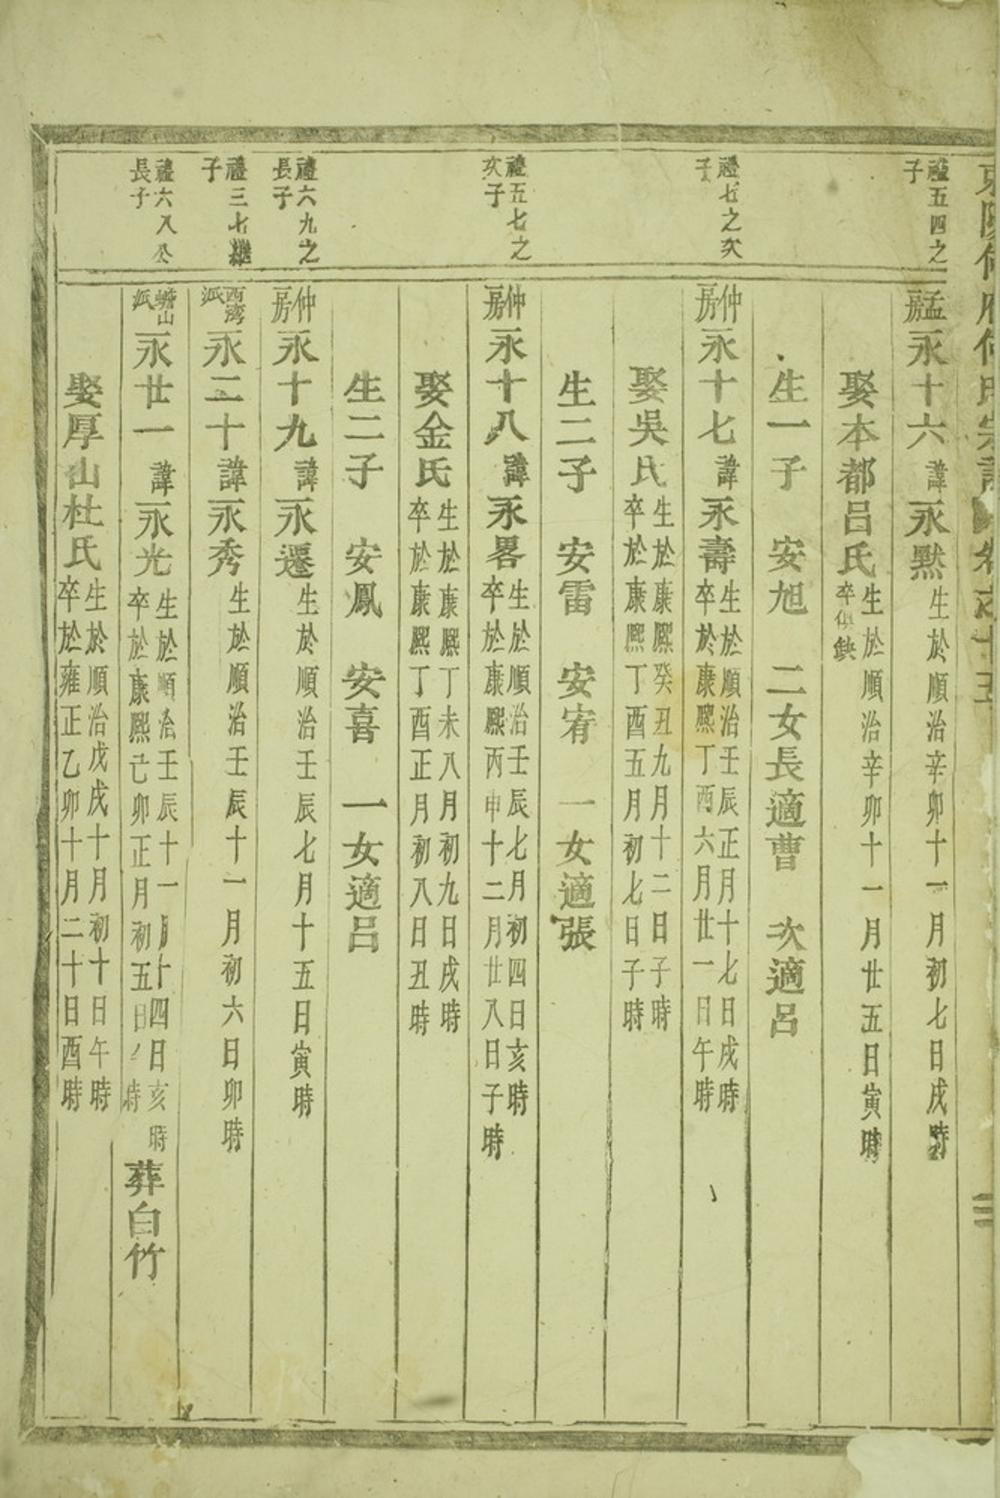 禮五四之子
孟房 永十六 諱永默 生於順治辛卯十一月初七日戌時
娶本都呂氏 生於順治辛卯十一月廿五日寅時 卒俱缺
生一子 安旭 二女長適曹 次適呂
禮七之次子
仲房 永十七 諱永壽 生於順治壬辰正月十七日戌時 卒於康熙丁酉六月廿一日午時
娶吳氏 生於康熙癸丑九月十二日子時 卒於康熙丁酉五月初七日子時
生二子 安雷 安宥 一女適張
禮五七之次子
仲房 永十八 諱永畧 生於順治壬辰七月初四日亥時 卒於康熙丙申十二月廿八日子時
娶金氏 生於康熙丁未八月初九日戌時 卒於康熙丁酉正月初八日丑時
生二子 安鳳 安喜 一女適呂
禮六九之長子
仲房 永十九 諱永遷 生於順治壬辰七月十五日寅時
禮三七繼子
西灣派 永二十 諱永秀 生於順治壬辰十一月初六日卯時
禮六八公長子
山派 永廿一 諱永光 生於順治壬辰十一月十四日亥時 卒於康熙己卯正月初五日時 葬白竹
娶厚山杜氏 生於順治戊戌十月初十日午時 卒於雍正乙卯十月二十日酉時